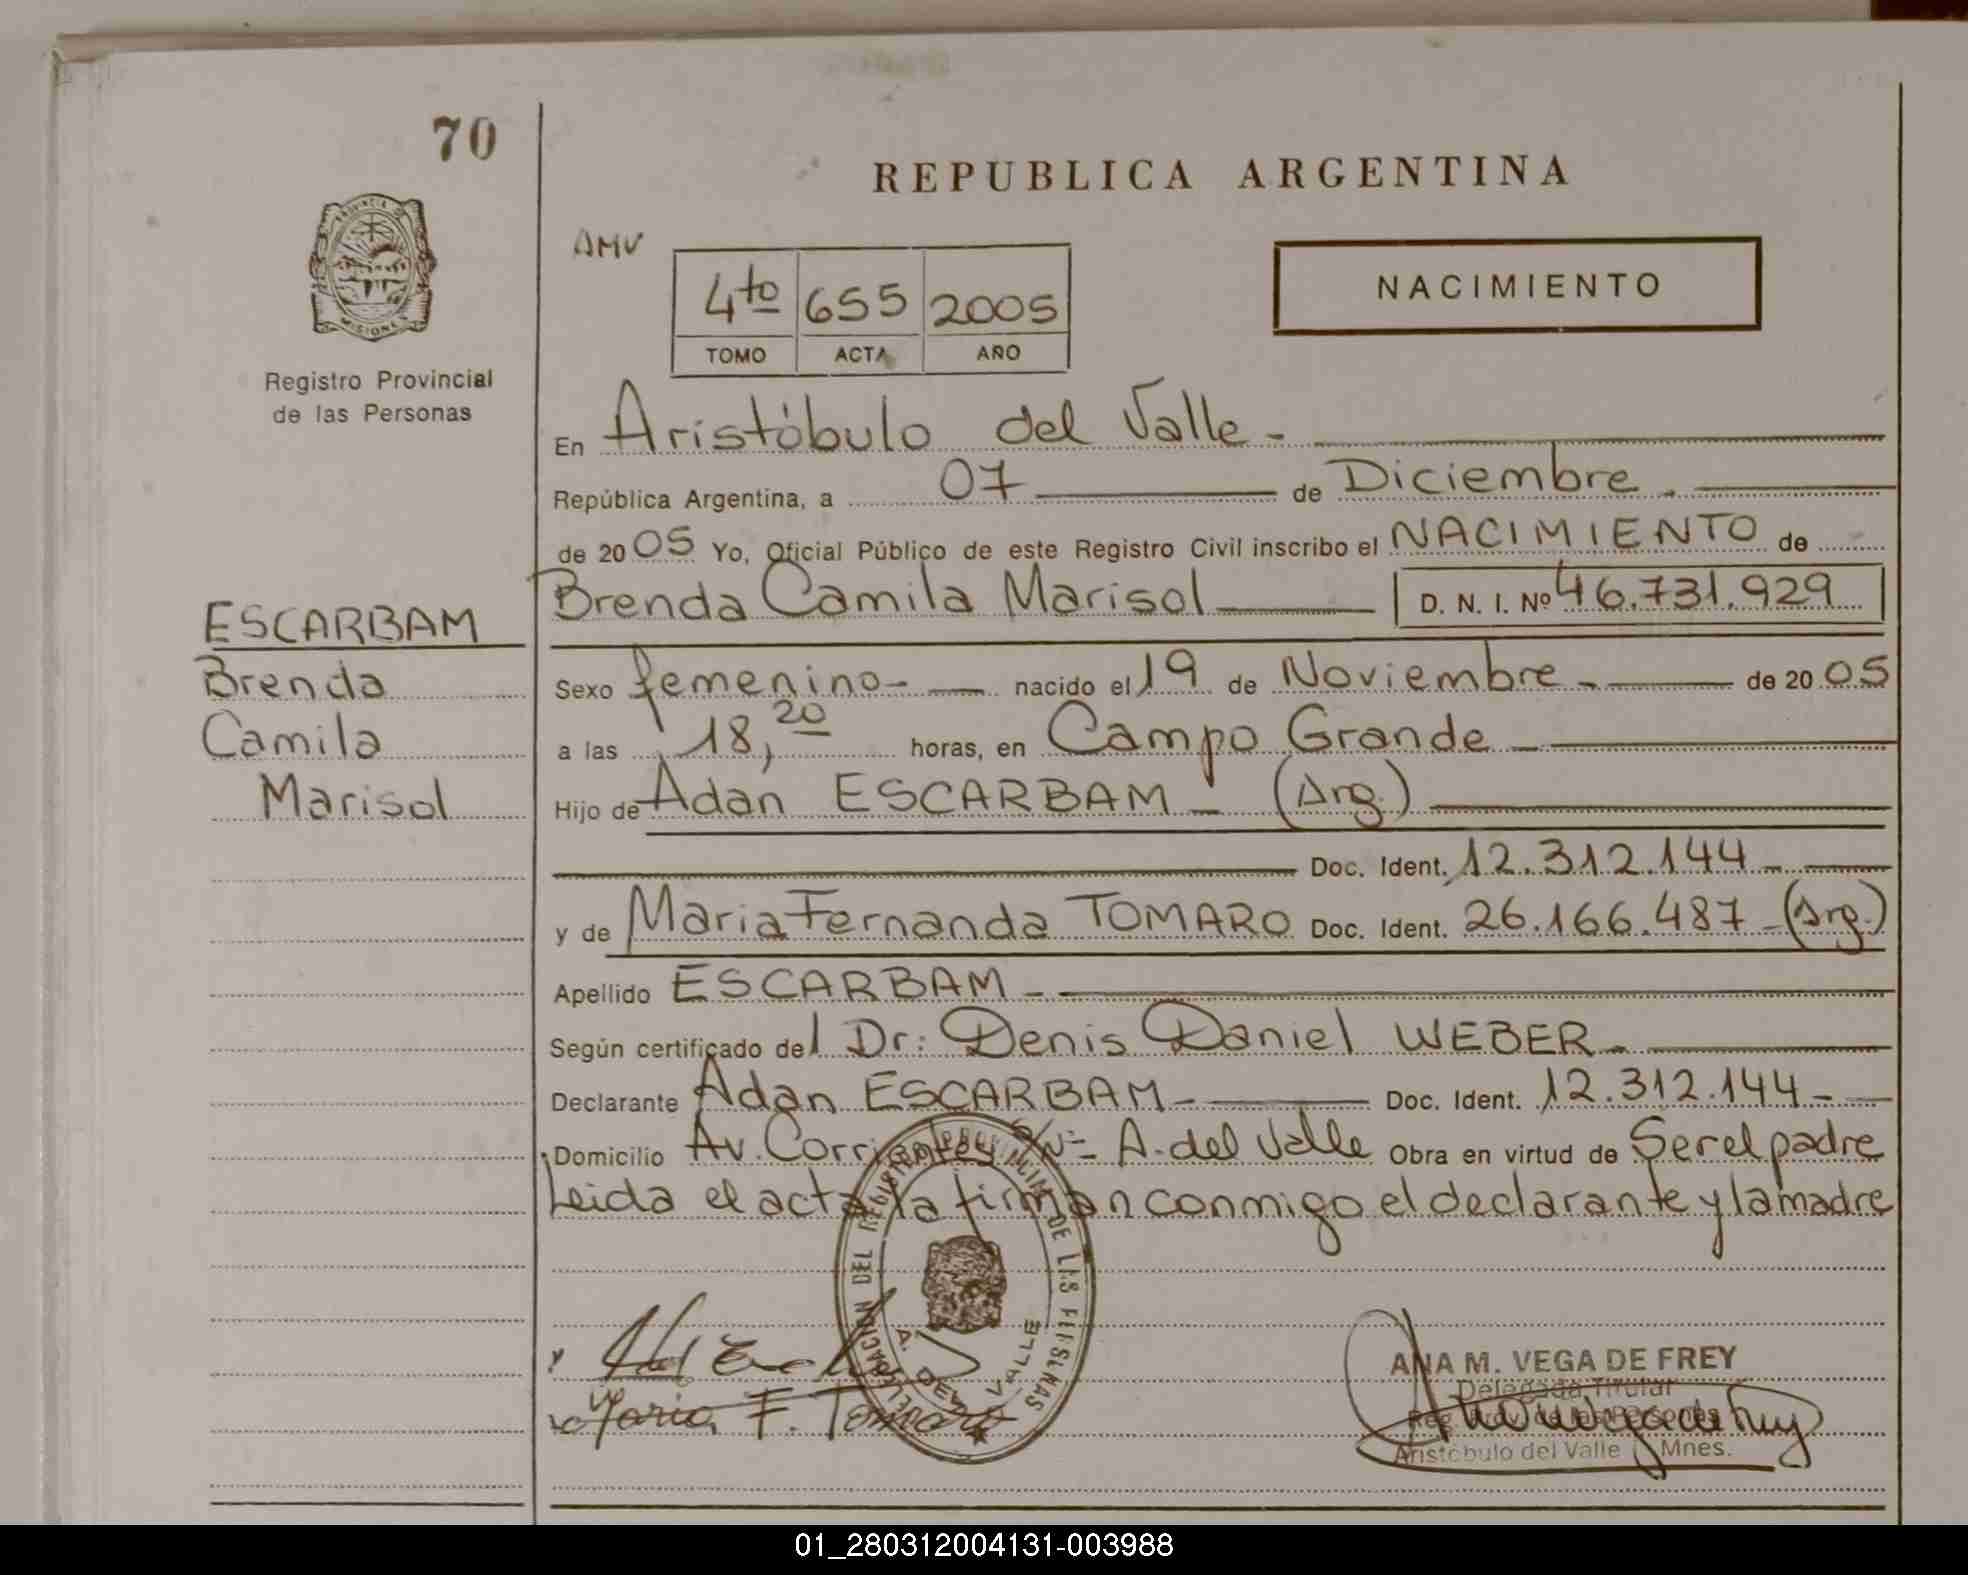 70
REPUBLICA ARGENTINA
PROVINCIA DE
MISIONES
Registro Provincial
de las Personas
AMV
4to 655 2005
TOMO ACTA AÑO
NACIMIENTO
En Aristóbulo del Valle -
República Argentina, a 07 de Diciembre -
de 2005 Yo, Oficial Público de este Registro Civil inscribo el NACIMIENTO de
Brenda Camila Marisol D. N. I. Nº 46.731.929
ESCARBAM
Brenda
Camila
Marisol
Sexo femenino - nacido el 19 de Noviembre - de 2005
a las 18,20 horas, en Campo Grande -
Hijo de Adan ESCARBAM - (Arg.)
Doc. Ident. 12.312.144 -
y de Maria Fernanda TOMARO Doc. Ident. 26.166.487 - (Arg.)
Apellido ESCARBAM -
Según certificado del Dr: Denis Daniel WEBER -
Declarante Adan ESCARBAM - Doc. Ident. 12.312.144 -
Domicilio Av. Corrientes S/Nº - A. del Valle Obra en virtud de Ser el padre
Leida el acta la firman conmigo el declarante y la madre
DEL REGISTRO PROVINCIAL DE LAS PERSONAS
A. DEL VALLE
Maria F. Tomaro
ANA M. VEGA DE FREY
Delegada Titular
Reg. Prov. de las Personas
Aristóbulo del Valle Mnes.
01_280312004131-003988